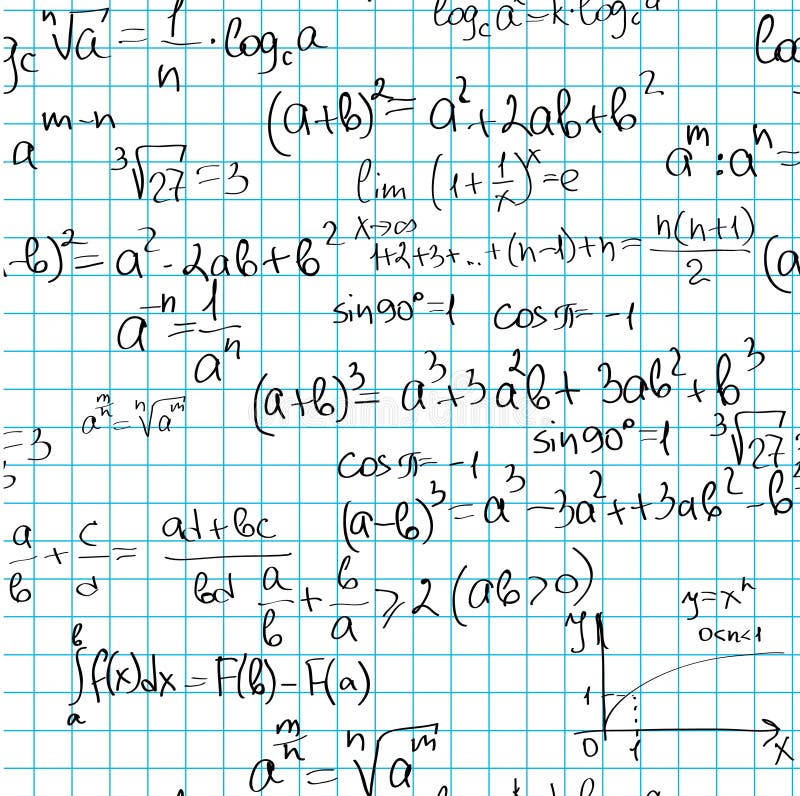 ⁿ√a = 1/n · log_c a
log_c a = k · log_c a
a^(m-n)
(a+b)² = a² + 2ab + b²
³√27 = 3
lim x→∞ (1 + 1/x)^x = e
a^m : a^n =
-b)² = a² - 2ab + b²
1+2+3+...+(n-1)+n = n(n+1)/2
(a
a^(-n) = 1/a^n
sin90° = 1
cos π = -1
(a+b)³ = a³ + 3a²b + 3ab² + b³
a^(m/n) = ⁿ√a^m
sin90° = 1
³√27
= 3
cos π = -1
(a-b)³ = a³ - 3a² + + 3ab² - b
a/b + c/d = ad+bc/bd
a/b + b/a ⩾ 2 (ab > 0)
y = x^n
0<n<1
y
∫_a^b f(x)dx = F(b) - F(a)
1
0
1
x
a^(m/n) = ⁿ√a^m